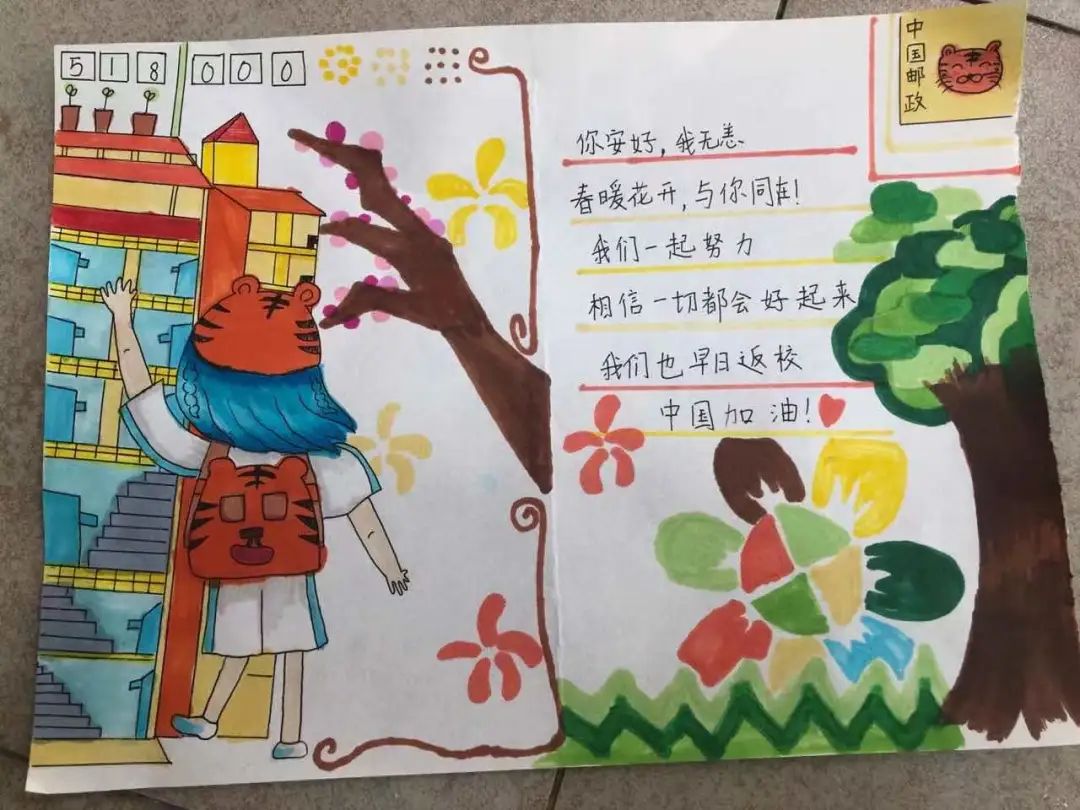 518 000
中国邮政
你安好,我无恙
春暖花开,与你同在!
我们一起努力
相信一切都会好起来
我们也早日返校
中国加油!